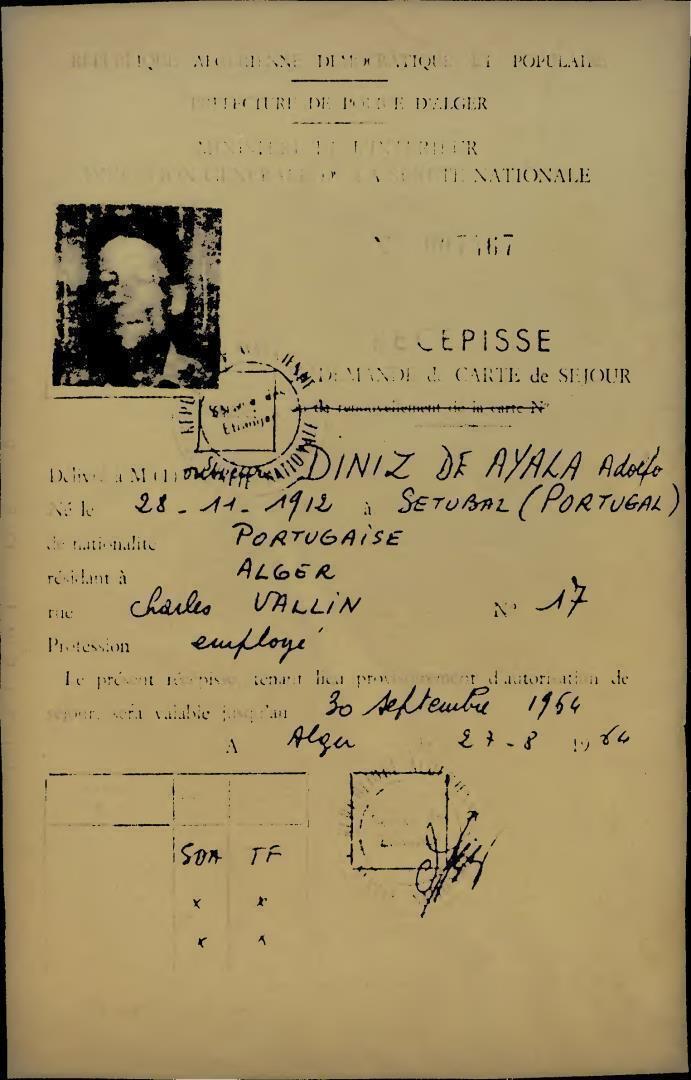 ALGERIENNE DEMOCRATIQUE ET POPULAIRE
PREFECTURE DE POLICE D'ALGER
MINISTERE DE L'INTERIEUR
DIRECTION GENERALE DE LA SURETE NATIONALE
RECEPISSE
DEMANDE de CARTE de SEJOUR
ou de renouvellement de la carte N°
Délivré à M DINIZ DE AYALA Adolfo
Né le 28-11-1912 à SETUBAL (PORTUGAL)
de nationalité PORTUGAISE
résidant à ALGER
rue Charles VALLIN N° 17
Profession employé
Le présent récépissé, tenant lieu provisoirement d'autorisation de
séjour, sera valable jusqu'au 30 septembre 1964
A Alger 27-8 1964
SDA TF
x x
x x